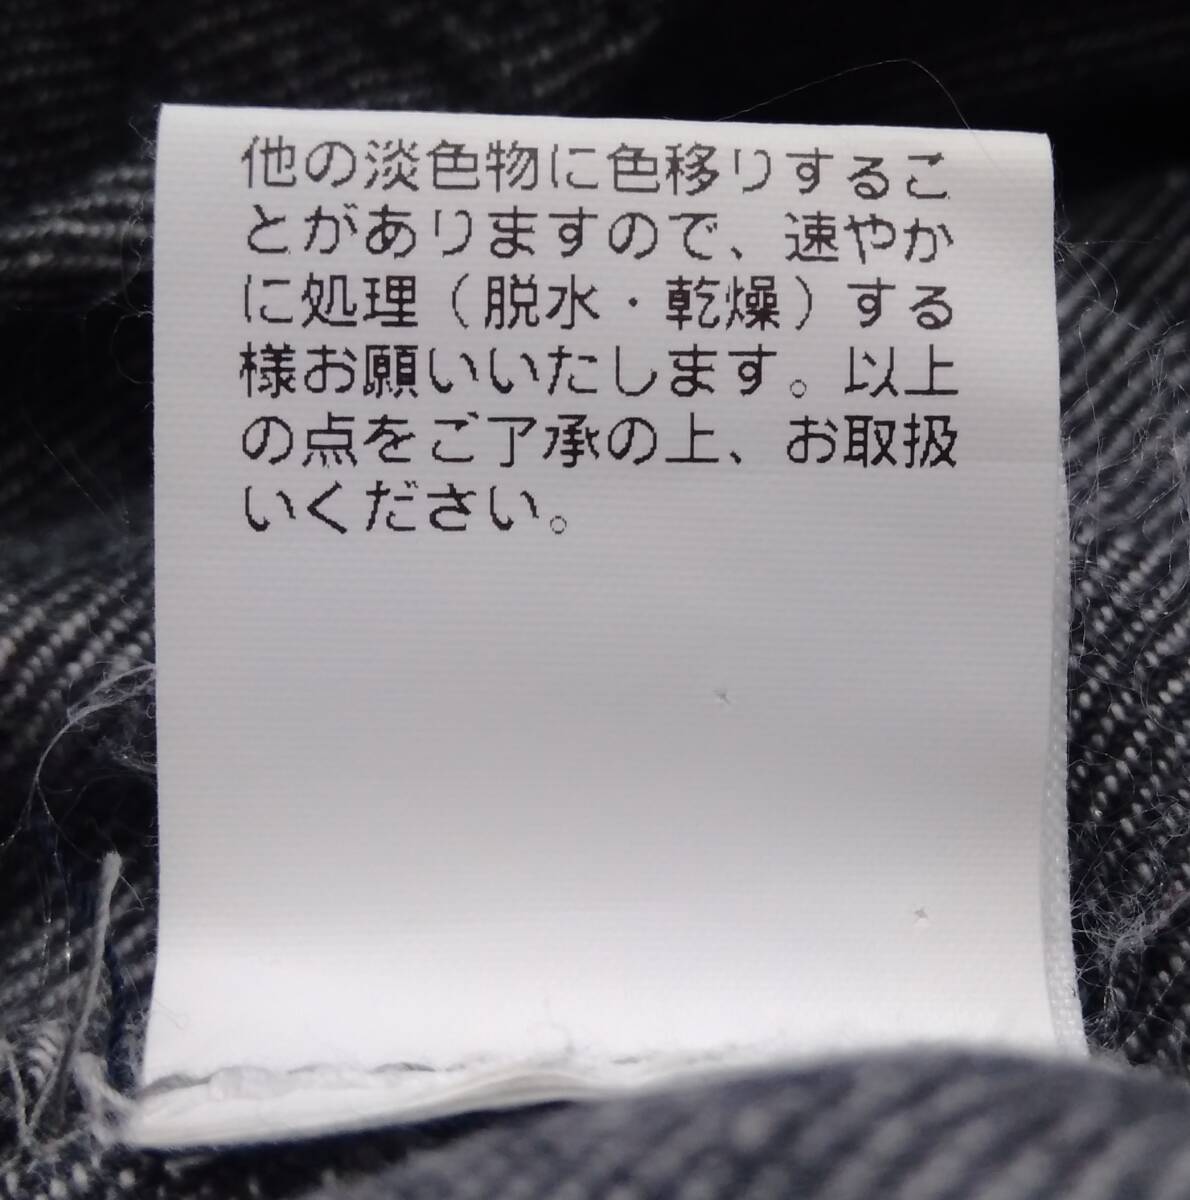 他の淡色物に色移りするこ
とがありますので、速やか
に処理（脱水・乾燥）する
様お願いいたします。以上
の点をご了承の上、お取扱
いください。